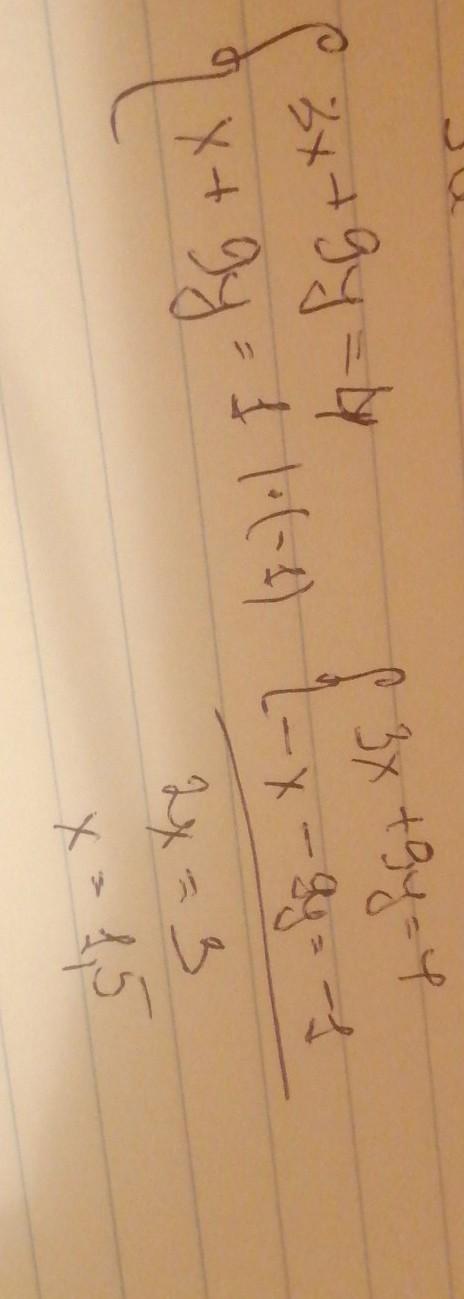 3x + 9y = 4
x + 9y = 1 | · (-1)
3x + 9y = 4
- x - 9y = -1
2x = 3
x = 1,5